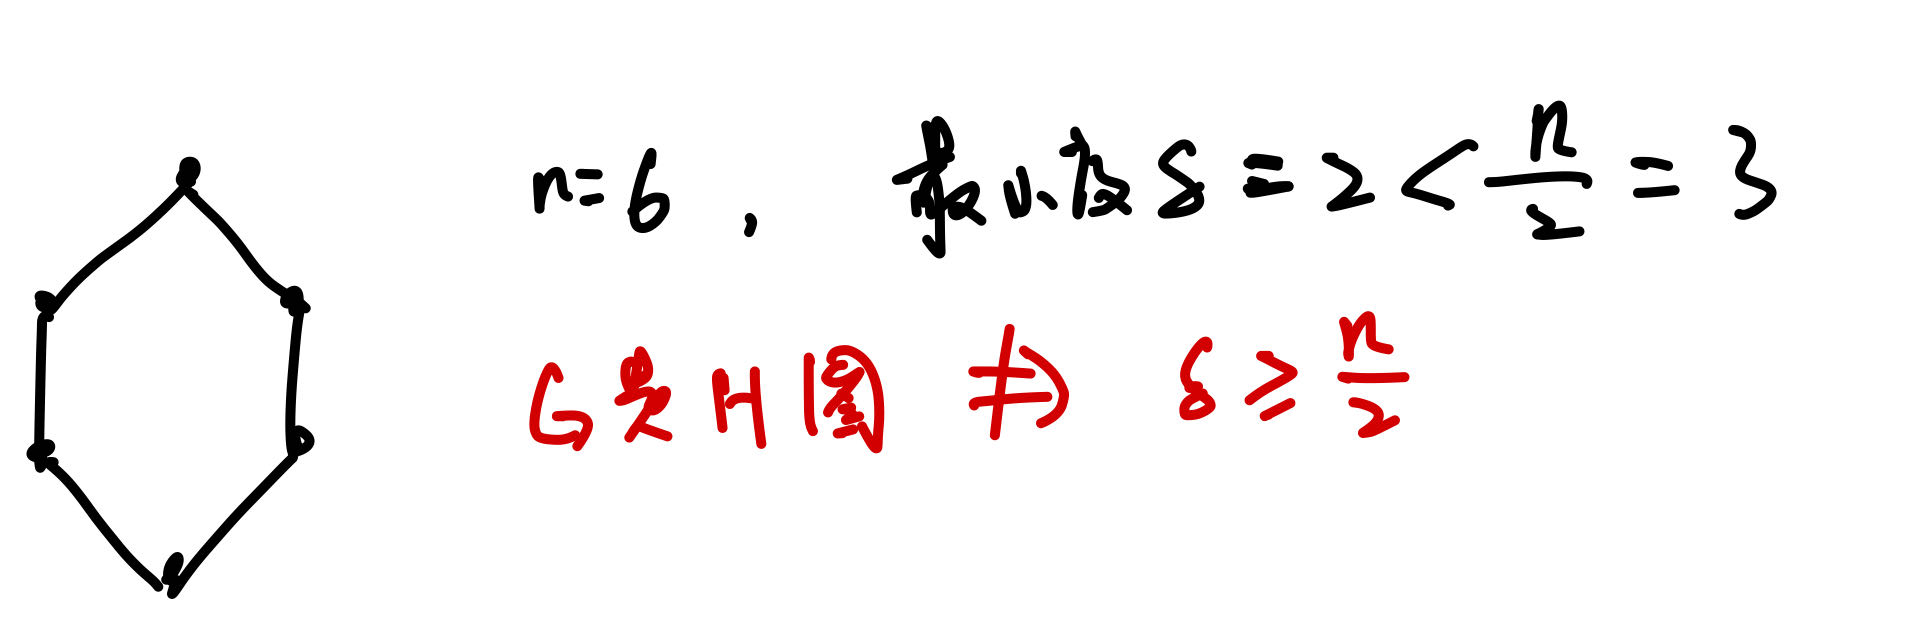 n=6, 最小度 δ = 2 < n/2 = 3
G是H图 ⇏ δ ≥ n/2